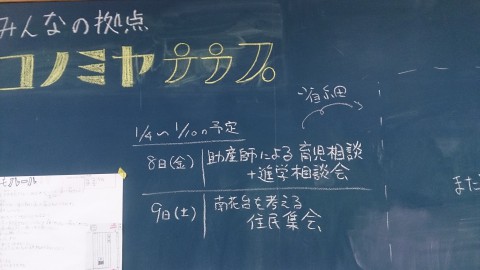 みんなの拠点
コノミヤテラス。
詳細
1/4〜1/10の予定
8日(金) 助産師による育児相談
+進学相談会
9日(土) 南花台を考える
住民集会
また